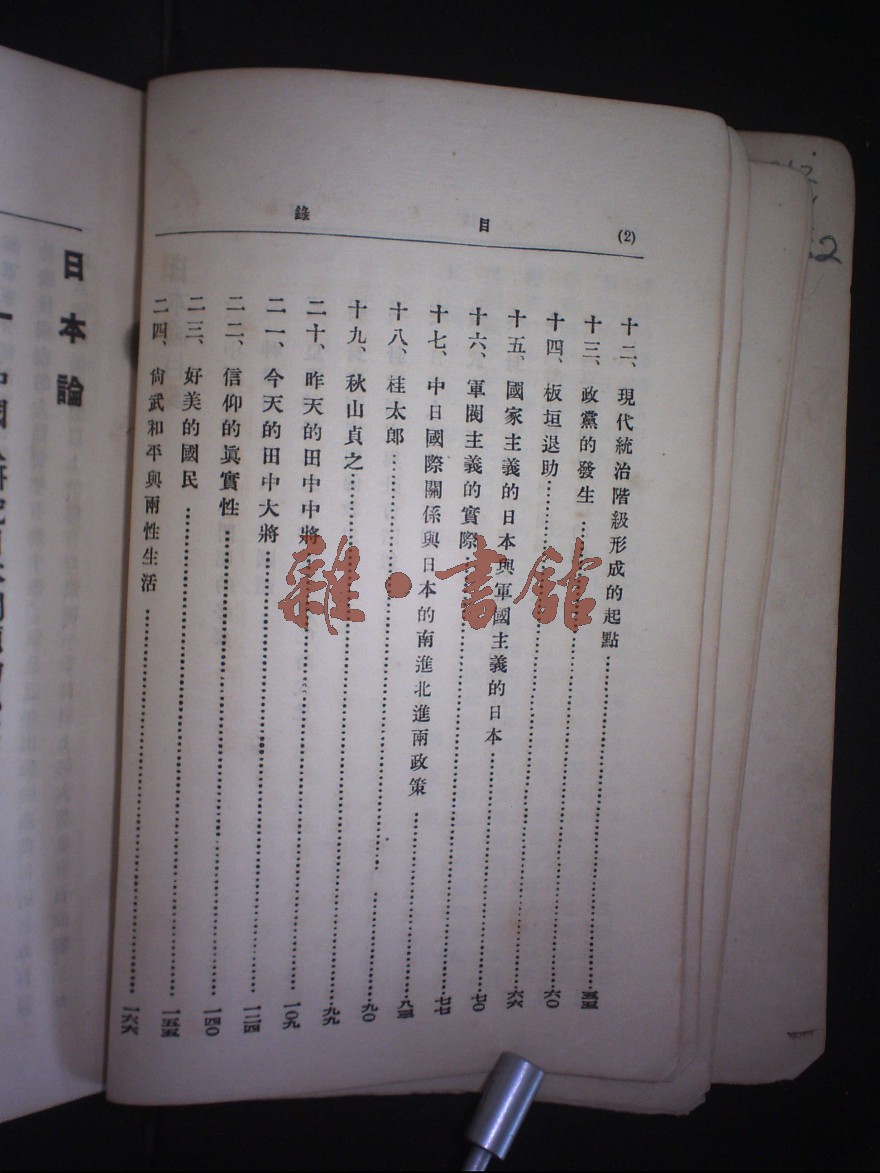 (2) 目錄
十二、現代統治階級形成的起點……五五
十三、政黨的發生……六〇
十四、板垣退助……六六
十五、國家主義的日本與軍國主義的日本……七〇
十六、軍閥主義的實際……七七
十七、中日國際關係與日本的南進北進兩政策……八三
十八、桂太郎……九〇
十九、秋山貞之……九九
二十、昨天的田中中將……一〇九
二一、今天的田中大將……一二四
二二、信仰的眞實性……一四〇
二三、好美的國民……一五五
二四、尙武和平與兩性生活……一六六
日本論
雜·書館